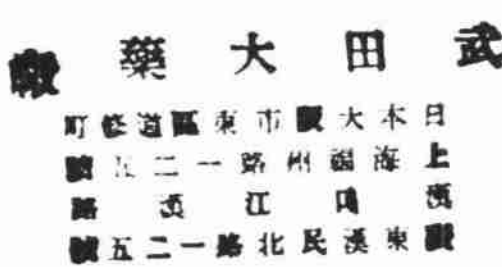 武田大藥廠
日本大阪市東區道修町
上海福州路一二五號
漢口江漢路
廣東漢民北路一二五號